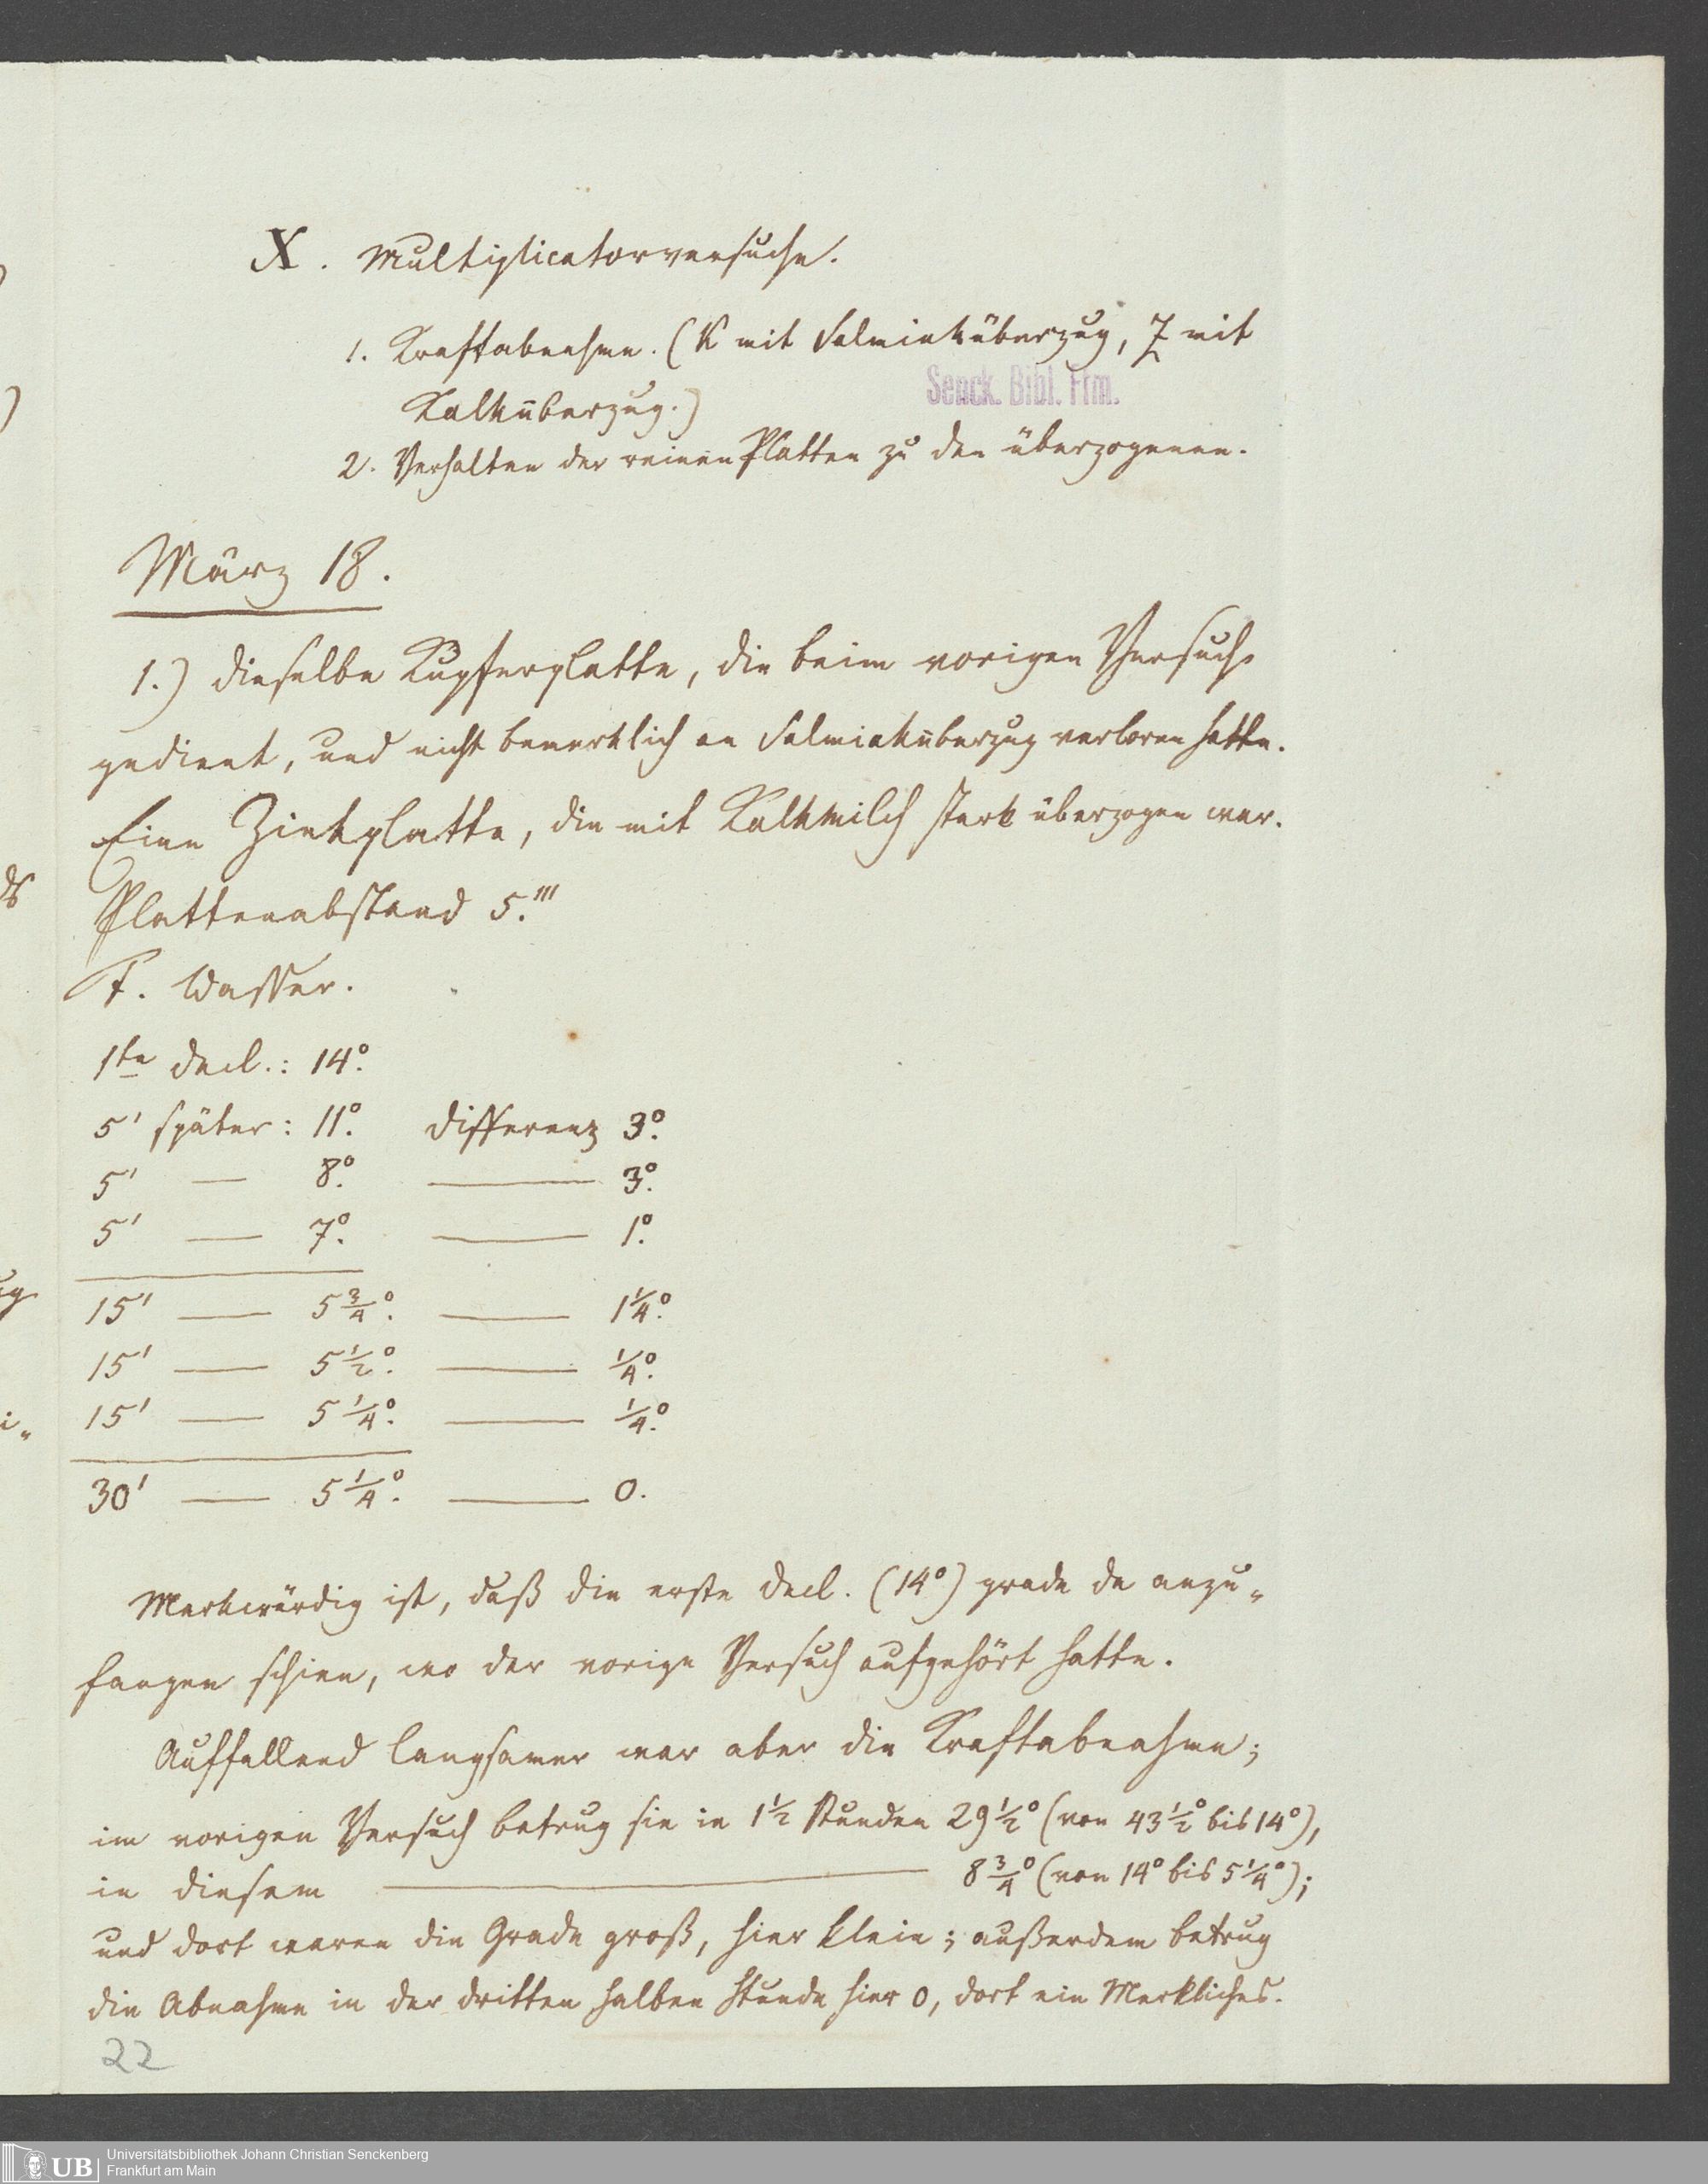 X. Multiplicatorversuche.
1. Kraftabnahme. (K mit Salmiaküberzug, Z mit
Kalküberzug.)
Senck. Bibl. Ffm.
2. Verhalten der reinen Platten zu den überzogenen.
März 18.
1.) Dieselbe Kupferplatte, die beim vorigen Versuch
gedient, und nicht bemerklich an Salmiaküberzug verloren hatte.
Eine Zinkplatte, die mit Kalkmilch stark überzogen war.
Plattenabstand 5.'''
F. Wasser.
1te Decl.: 14°.
5' später: 11°. Differenz 3°.
5' — 8°. — 3°.
5' — 7°. — 1°.
15' — 5 3/4°. — 1 1/4°.
15' — 5 1/2°. — 1/4°.
15' — 5 1/4°. — 1/4°.
30' — 5 1/4°. — 0.
Merkwürdig ist, daß die erste Decl. (14°) grade da anzu„
fangen schien, wo der vorige Versuch aufgehört hatte.
Auffallend langsamer war aber die Kraftabnahme;
im vorigen Versuch betrug sie in 1 1/2 Stunden 29 1/2° (von 43 1/2° bis 14°),
in diesem — 8 3/4° (von 14° bis 5 1/4°);
und dort waren die Grade groß, hier klein; außerdem betrug
die Abnahme in der dritten halben Stunde hier 0, dort ein Merkliches.
22
UB
Universitätsbibliothek Johann Christian Senckenberg
Frankfurt am Main